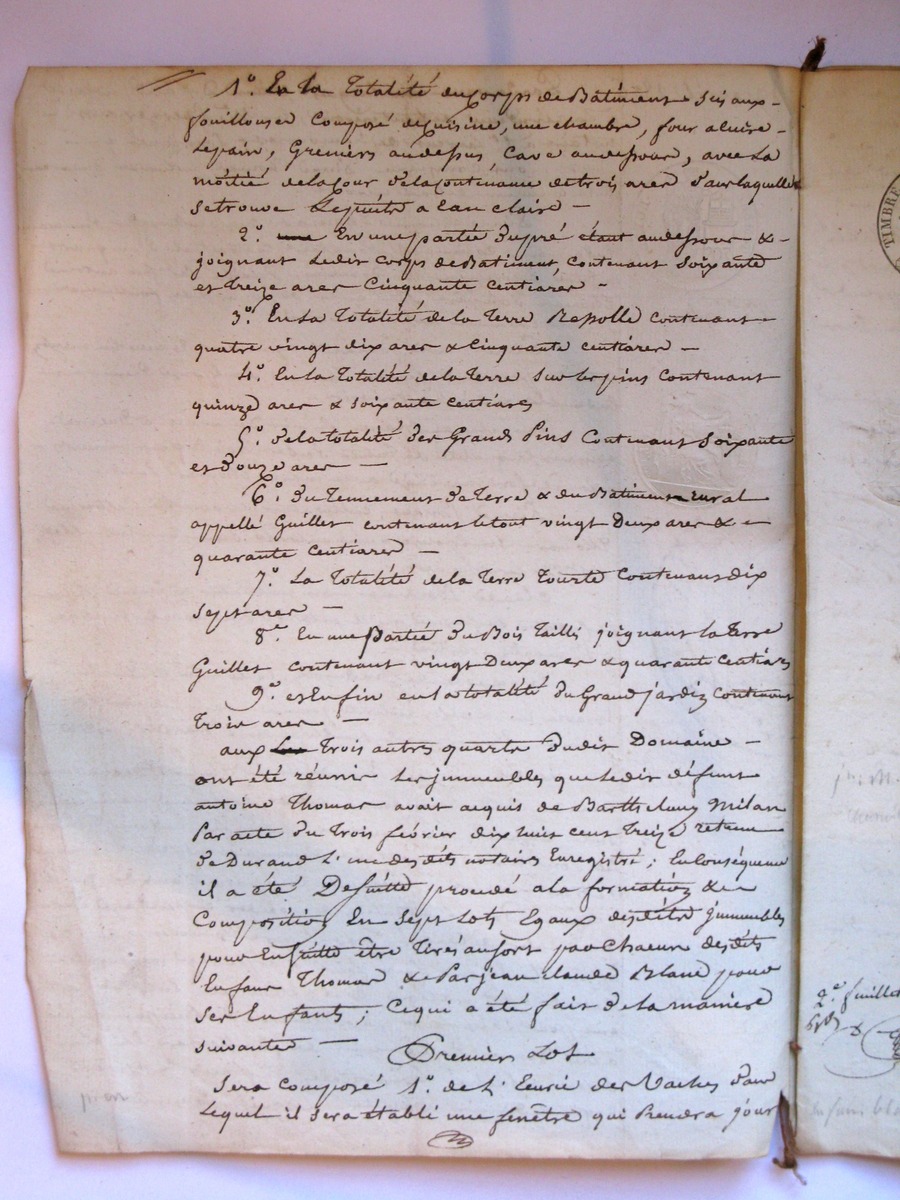 1°. En la Totalité du Corps de Bâtiment sis aux
fouillouses Composé de Cuisine, une chambre, four a Cuire
Lepain, Greniers audessus, Cave audessous, avec La
moitié de la Cour de la Contenance de trois ares dans laquelle
se trouve Le puits a Eau claire —
2°. En une partie du pré étant audessous &
joignant Ledit Corps de Batiment, Contenant Soixante
et treize ares Cinquante Centiares -
3°. En la Totalité de la Terre Contenant
quatre vingt dix ares & Cinquante Centiares —
4°. En la Totalité de la Terre Sur les pins Contenant
quinze ares & Soixante Centiares
5°. de la totalité des Grands Pins Contenant Soixante
et douze ares —
6°. du Tennement de Terre & du Batiment Rural
appellé Guillet contenant le tout vingt Deux ares &
quarante Centiares —
7°. La Totalité de la Terre Contenant dix
sept ares —
8°. En une Partie du Bois Taillis joignant la Terre
Guillet contenant vingt Deux ares & quarante Centiares
9°. et Enfin en la totalité du Grand jardin Contenant
Trois ares —
aux Trois autres quarts dudit Domaine —
ont été réunis Les jmmeubles que ledit défunt
antoine Thomas avait acquis de Barthelemy Milan
Par acte du Trois février dix huit cent Treize retenu
de Durand L'un des dits notaires Enregistré ; En Conséquence
il a été De suitte procédé a la formation &
Composition En Sept Lots Egaux desdits jmmeubles
pour Ensuitte être Tirés au sort par Chacun desdits
Enfans Thomas & Par jean claude Blanc pour
Ses Enfants ; Ce qui a été fait de la maniere
suivante —
Premier Lot
Sera Composé 1°. de L'Ecurie des Vaches dans
Lequel il Sera établi une fenêtre qui Prendra jour
TIMBRE
2e. feuillet